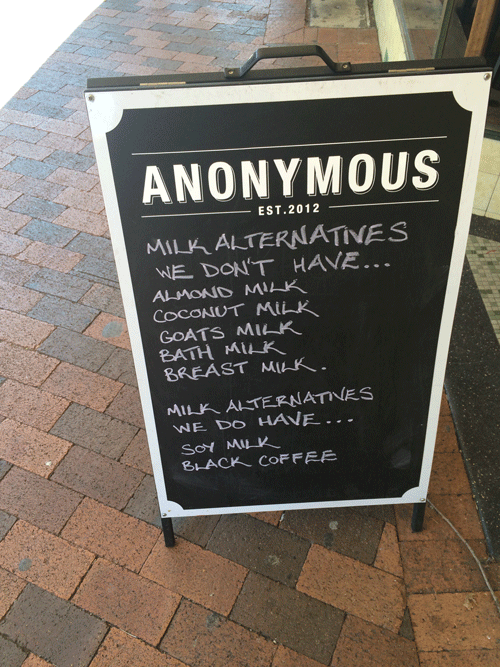 ANONYMOUS
EST.2012
MILK ALTERNATIVES
WE DON'T HAVE...
ALMOND MILK
COCONUT MILK
GOATS MILK
BATH MILK
BREAST MILK.
MILK ALTERNATIVES
WE DO HAVE...
SOY MILK
BLACK COFFEE